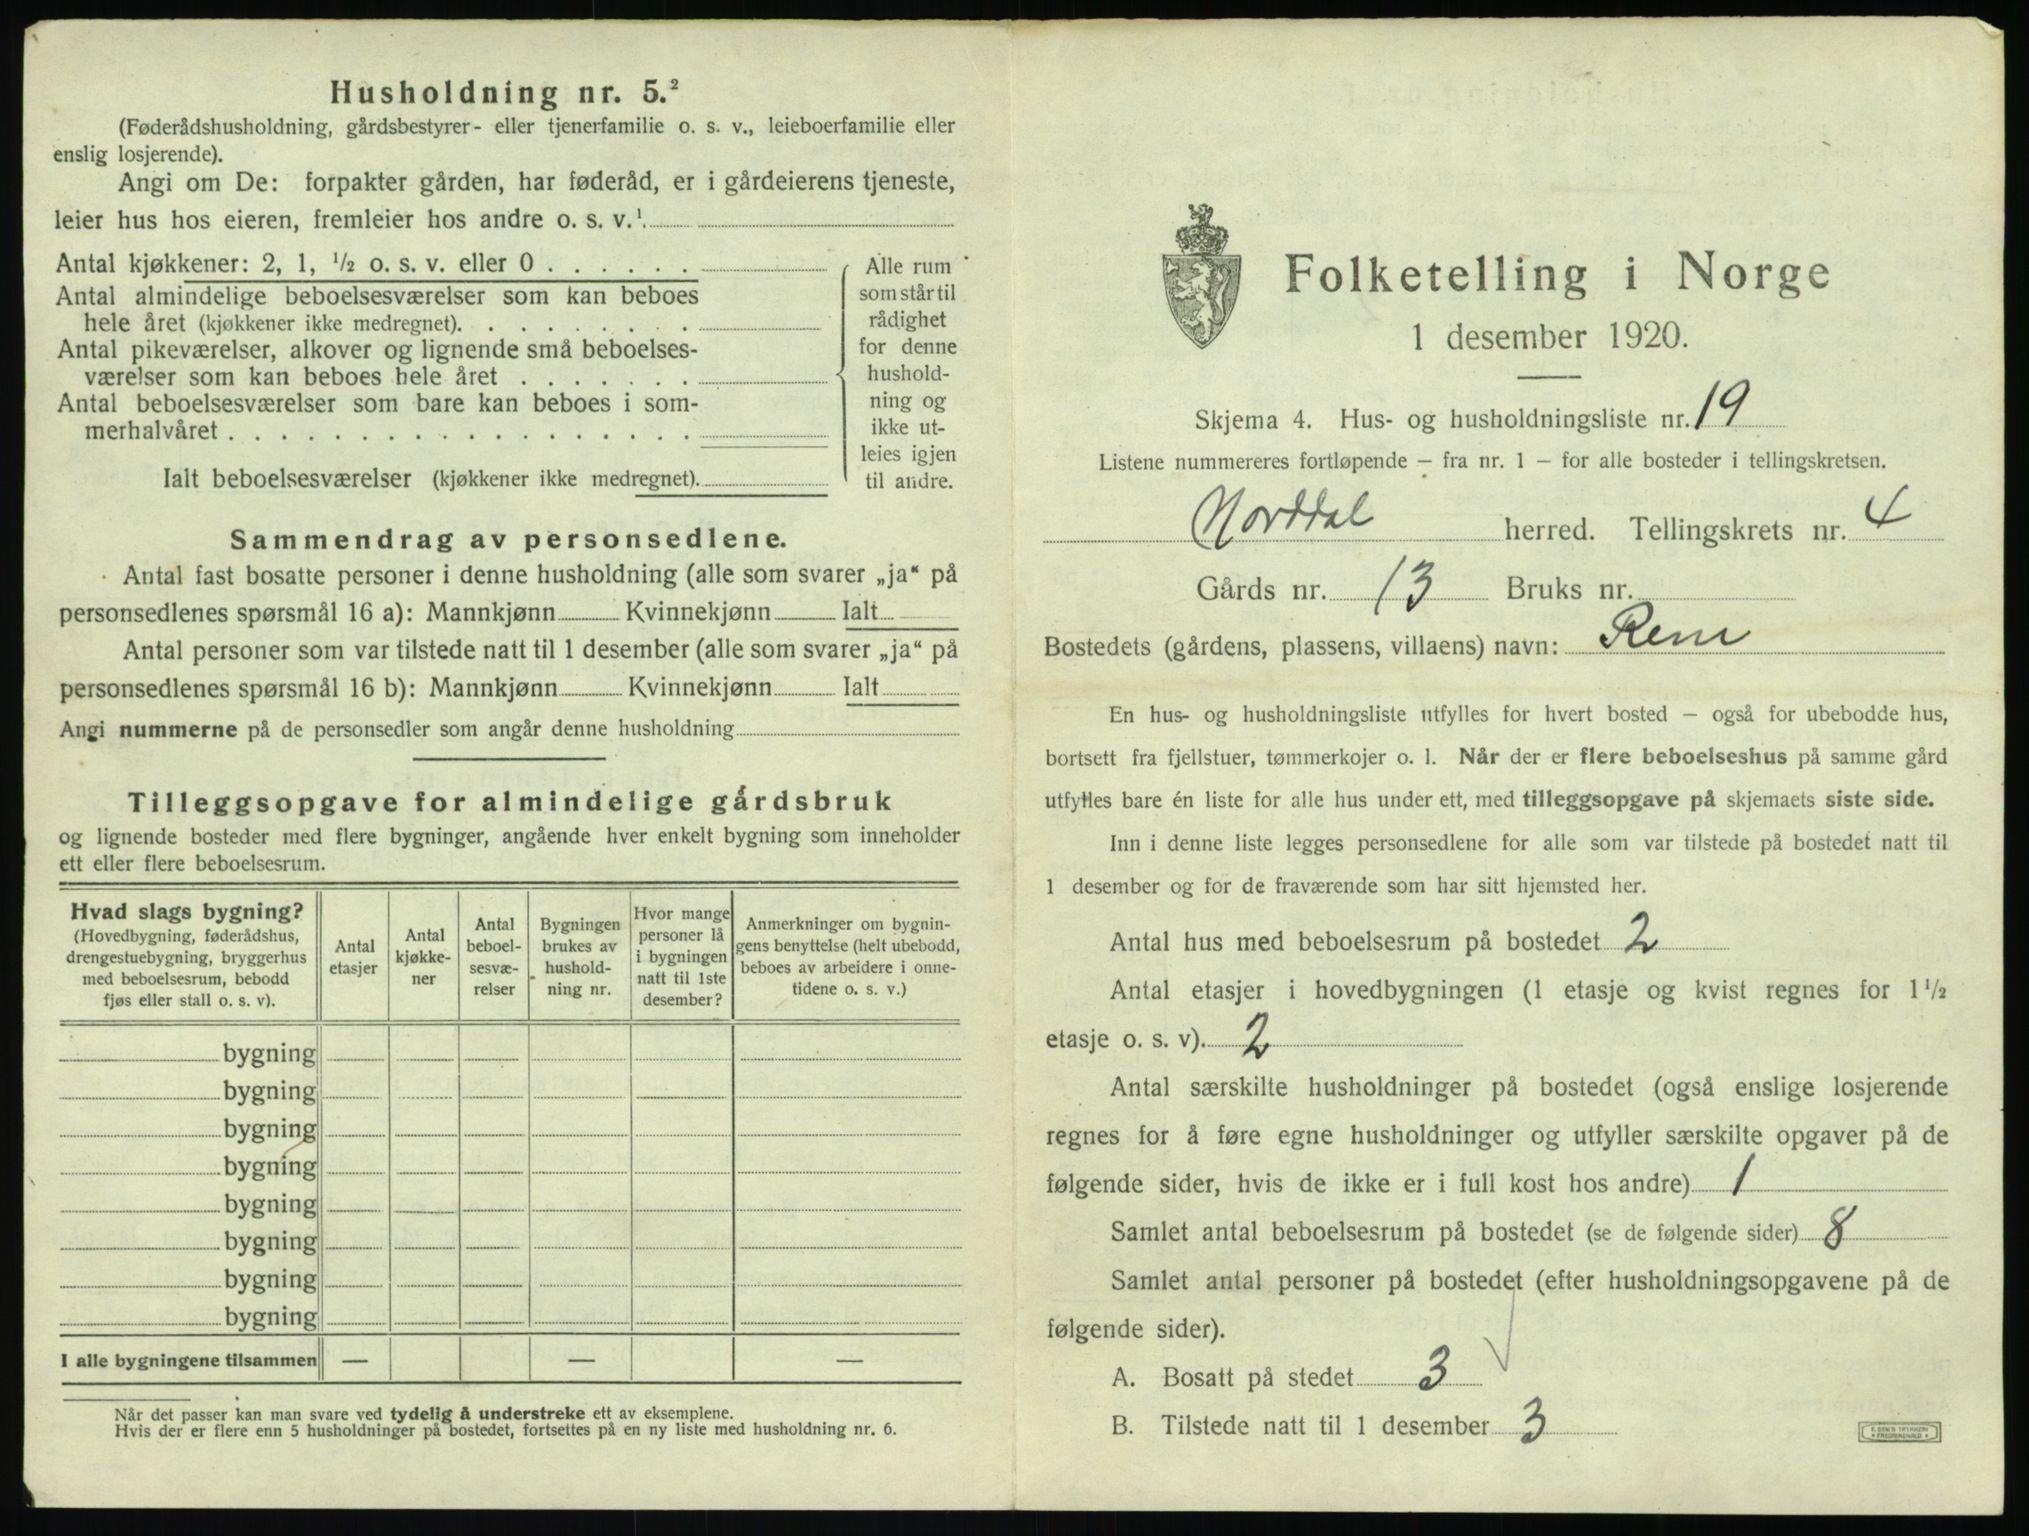 Husholdning nr. 5.²
(Føderådshusholdning, gårdsbestyrer- eller tjenerfamilie o. s. v., leieboerfamilie eller
enslig losjerende).
Angi om De: forpakter gården, har føderåd, er i gårdeierens tjeneste,
leier hus hos eieren, fremleier hos andre o. s. v.¹
Antal kjøkkener: 2, 1, ½ o. s. v. eller 0 . . . . . .
Antal almindelige beboelsesværelser som kan beboes
hele året (kjøkkener ikke medregnet). . . . . . . . .
Antal pikeværelser, alkover og lignende små beboelses-
værelser som kan beboes hele året . . . . . . .
Antal beboelsesværelser som bare kan beboes i som-
merhalvåret . . . . . . . . . . . . . . . . . .
Ialt beboelsesværelser (kjøkkener ikke medregnet).
Alle rum
som står til
rådighet
for denne
hushold-
ning og
ikke ut-
leies igjen
til andre.
Sammendrag av personsedlene.
Antal fast bosatte personer i denne husholdning (alle som svarer „ja“ på
personsedlenes spørsmål 16 a): Mannkjønn Kvinnekjønn Ialt
Antal personer som var tilstede natt til 1 desember (alle som svarer „ja“ på
personsedlenes spørsmål 16 b): Mannkjønn Kvinnekjønn Ialt
Angi nummerne på de personsedler som angår denne husholdning
Tilleggsopgave for almindelige gårdsbruk
og lignende bosteder med flere bygninger, angående hver enkelt bygning som inneholder
ett eller flere beboelsesrum.
Hvad slags bygning?
(Hovedbygning, føderådshus,
drengestuebygning, bryggerhus
med beboelsesrum, bebodd
fjøs eller stall o. s. v).
Antal
etasjer
Antal
kjøkke-
ner
Antal
beboel-
sesvæ-
relser
Bygningen
brukes av
hushold-
ning nr.
Hvor mange
personer lå
i bygningen
natt til 1ste
desember?
Anmerkninger om bygnin-
gens benyttelse (helt ubebodd,
beboes av arbeidere i onne-
tidene o. s. v.)
bygning
bygning
bygning
bygning
bygning
bygning
bygning
bygning
I alle bygningene tilsammen — — —
Når det passer kan man svare ved tydelig å understreke ett av eksemplene.
Hvis der er flere enn 5 husholdninger på bostedet, fortsettes på en ny liste med husholdning nr. 6.
Folketelling i Norge
1 desember 1920.
Skjema 4. Hus- og husholdningsliste nr. 19
Listene nummereres fortløpende – fra nr. 1 – for alle bosteder i tellingskretsen.
Norddal herred. Tellingskrets nr. 4
Gårds nr. 13 Bruks nr.
Bostedets (gårdens, plassens, villaens) navn: Rem
En hus- og husholdningsliste utfylles for hvert bosted – også for ubebodde hus,
bortsett fra fjellstuer, tømmerkojer o. l. Når der er flere beboelseshus på samme gård
utfylles bare én liste for alle hus under ett, med tilleggsopgave på skjemaets siste side.
Inn i denne liste legges personsedlene for alle som var tilstede på bostedet natt til
1 desember og for de fraværende som har sitt hjemsted her.
Antal hus med beboelsesrum på bostedet 2
Antal etasjer i hovedbygningen (1 etasje og kvist regnes for 1 ½
etasje o. s. v). 2
Antal særskilte husholdninger på bostedet (også enslige losjerende
regnes for å føre egne husholdninger og utfyller særskilte opgaver på de
følgende sider, hvis de ikke er i full kost hos andre) 1
Samlet antal beboelsesrum på bostedet (se de følgende sider) 8
Samlet antal personer på bostedet (efter husholdningsopgavene på de
følgende sider).
A. Bosatt på stedet 3
B. Tilstede natt til 1 desember 3